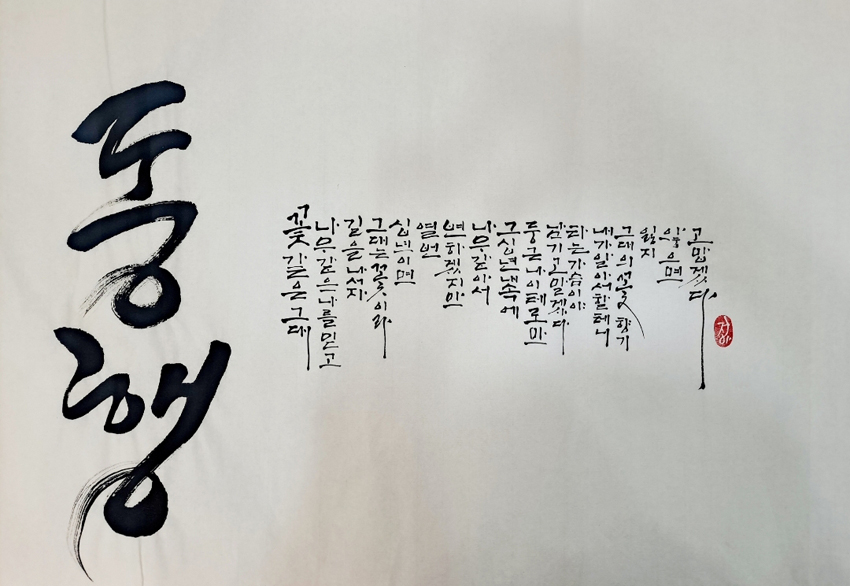 동행
꽃 같은 그대
나무 같은 나를 믿고
길을 나서자
그대는 꽃이라
십년이면
열번
변하겠지만
나무 같아서
그 십년 내 속에
둥근 나이테로만
남기고 말겠다
타는 가슴이야
내가 알아서 할 테니
그대의 꽃향기
잃지
않으면
고맙겠다